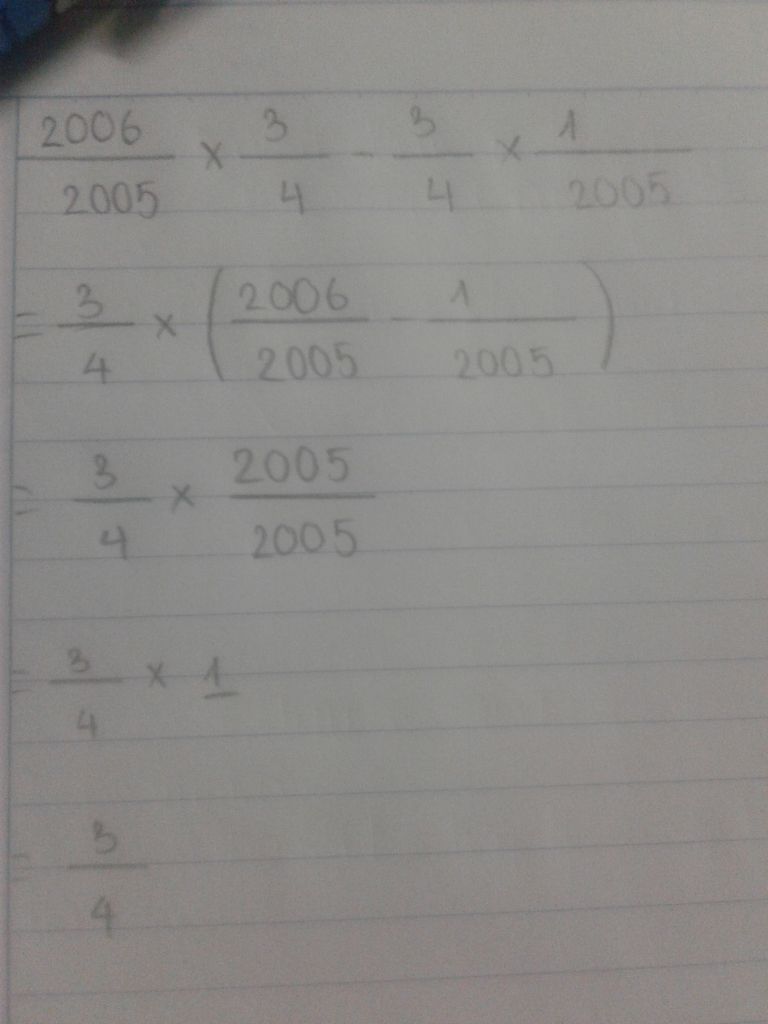 2006/2005 × 3/4 - 3/4 × 1/2005
= 3/4 × (2006/2005 - 1/2005)
= 3/4 × 2005/2005
= 3/4 × 1
= 3/4